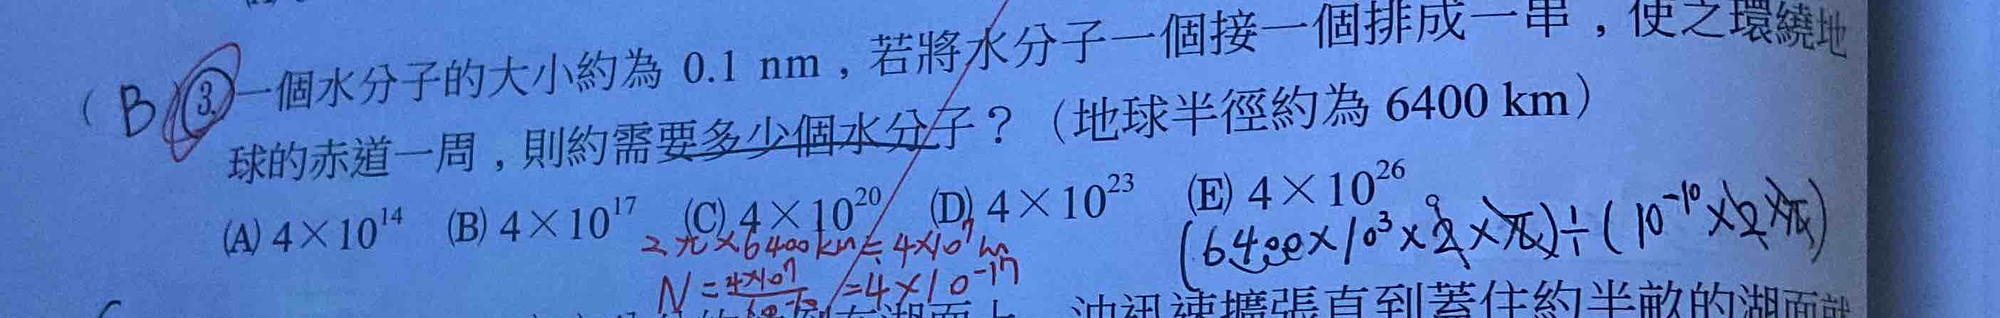 ( B ) 3. 一個水分子的大小約為 0.1 nm，若將水分子一個接一個排成一串，使之環繞地
球的赤道一周，則約需要多少個水分子？（地球半徑約為 6400 km）
(A) 4×10¹⁴ (B) 4×10¹⁷ (C) 4×10²⁰ (D) 4×10²³ (E) 4×10²⁶
2π×6400km≒4×10⁷m
(6400×10³×2×π)÷(10⁻¹⁰×2×π)
N=4×10⁷/10⁻¹⁰=4×10⁻¹⁷
在湖面上，油迅速擴張直到蓋住約半畝的湖面就